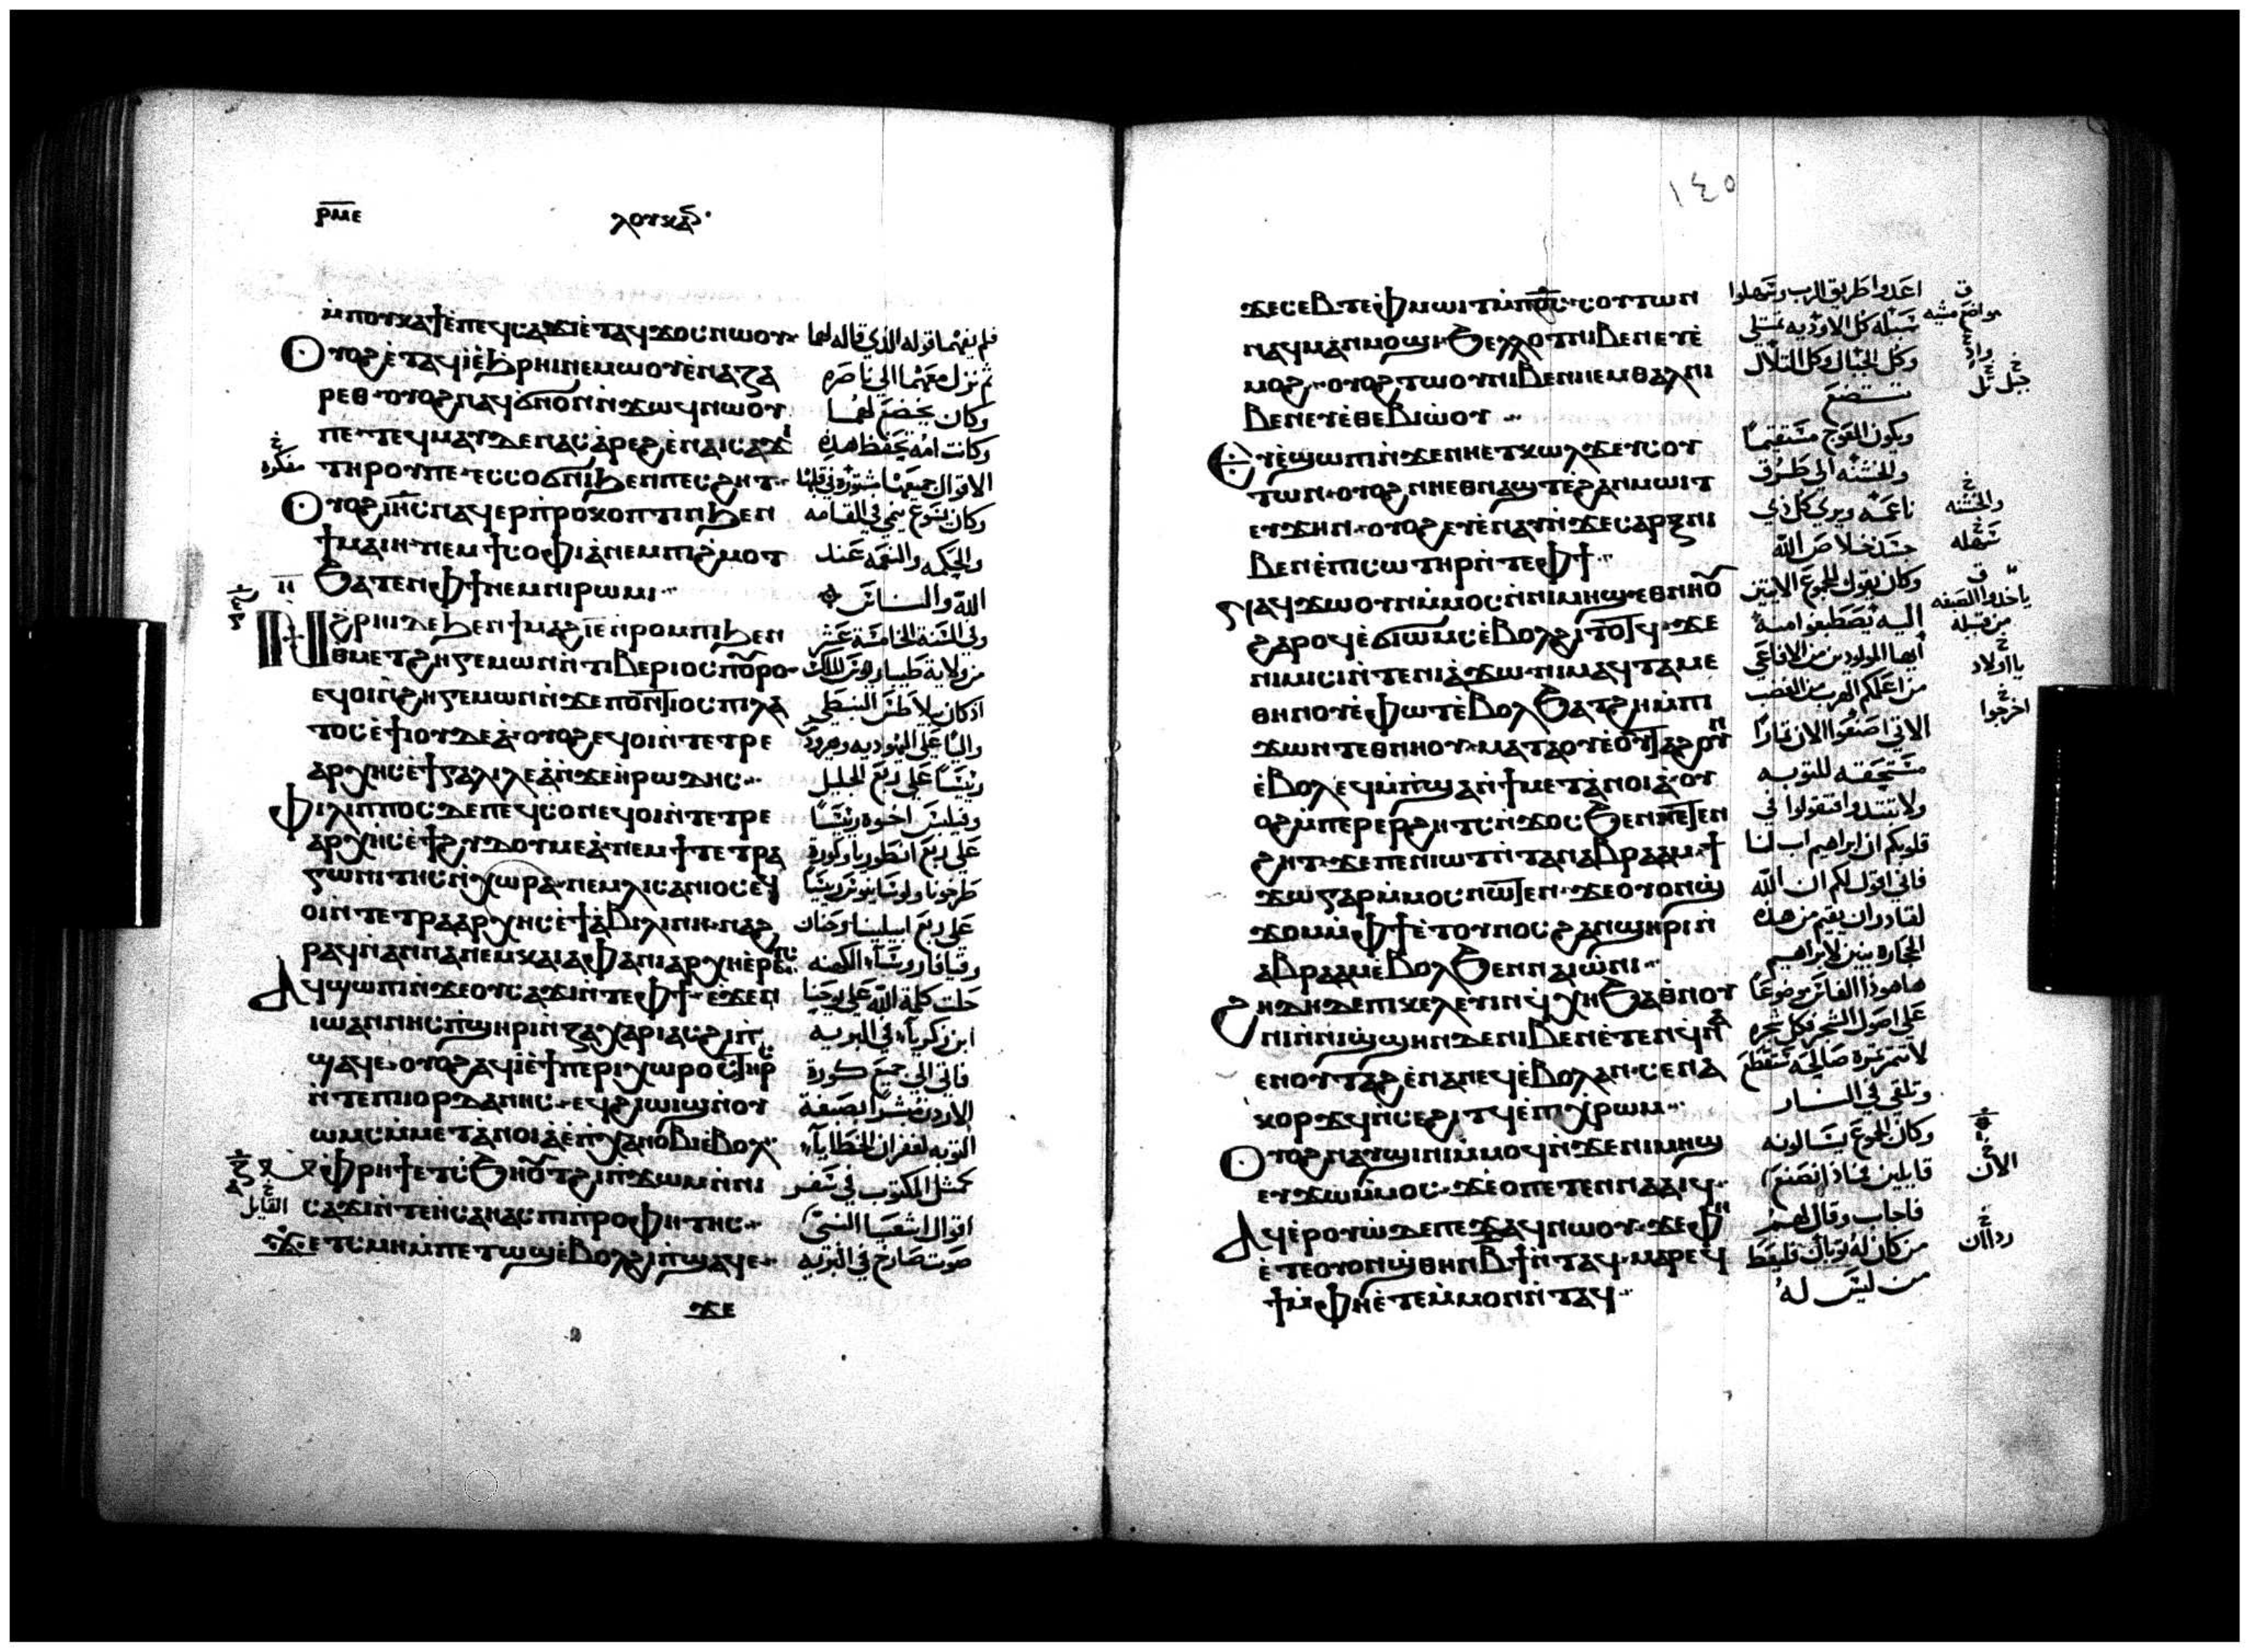 ⲣⲙⲉ
ⲗⲟⲩⲕⲁⲥ
ⲙⲡⲟⲩⲕⲁϯⲉ̀ⲡⲉϥⲥⲁϫⲓⲉ̀ⲧⲁϥϫⲟⲥⲛⲱⲟⲩ
ⲟⲩⲟϩⲉ̀ⲧⲁϥⲓ̀ⲉ̀ϧⲣⲏⲓⲛⲉⲙⲱⲟⲩⲉ̀ⲛⲁⲍⲁ
ⲣⲉⲑ ⲟⲩⲟϩⲛⲁϥϭⲛⲟⲛⲛ̀ϫⲱϥⲛⲱⲟⲩ
ⲡⲉ ⲧⲉϥⲙⲁⲩⲇⲉⲛⲁⲥⲁ̀ⲣⲉϩⲉ̀ⲛⲁⲓⲥⲁϫⲓ
ⲧⲏⲣⲟⲩⲡⲉ ⲉⲥⲥⲟϭⲛⲓϧⲉⲛⲡⲉⲥϩⲏⲧ
ⲟⲩⲟϩⲓⲏⲥⲛⲁϥⲉⲣⲡ̀ⲣⲟⲕⲟⲡⲧⲓⲛϧⲉⲛ
ϯⲙⲁⲓⲏ ⲛⲉⲙϯⲥⲟⲫⲓⲁ̀ⲛⲉⲙⲡⲓϩ̀ⲙⲟⲧ
ϧⲁⲧⲉⲛⲫϯⲛⲉⲙⲛⲓⲣⲱⲙⲓ
ⲛ̀ϩⲣⲏⲓⲇⲉϧⲉⲛϯⲙⲁϩⲓ̅ⲉ̅ⲛ̀ⲣⲟⲙⲡⲓϧⲉⲛ
ⲑⲙⲉⲧϩⲏⲅⲉⲙⲱⲛⲛ̀ⲧⲓⲃⲉⲣⲓⲟⲥⲡⲟⲩⲣⲟ
ⲉϥⲟⲓⲛ̀ϩⲏⲅⲉⲙⲱⲛⲛ̀ϫⲉⲡⲟⲛⲧⲓⲟⲥⲡⲓⲗⲁ
ⲧⲟⲥⲉ̀ϯⲓⲟⲩⲇⲉⲁ̀ ⲟⲩⲟϩⲉϥⲟⲓⲛ̀ⲧⲉⲧⲣⲉ
ⲁⲣⲭⲏⲥⲉ̀ϯⲅⲁⲗⲓⲗⲉⲁ̀ⲛ̀ϫⲉⲏ̀ⲣⲱⲇⲏⲥ
ⲫⲓⲗⲓⲡⲡⲟⲥⲇⲉⲡⲉϥⲥⲟⲛⲉϥⲟⲓⲛ̀ⲧⲉⲧⲣⲉ
ⲁⲣⲭⲏⲥⲉ̀ϯϩⲩⲇⲟⲩⲙⲉⲁ̀ ⲛⲉⲙϯⲧⲉⲧⲣⲁ
ⲅⲱⲛⲓⲧⲏⲥⲛ̀ⲭⲱⲣⲁ ⲛⲉⲙⲗⲓⲥⲁⲛⲓⲟⲥⲉϥ
ⲟⲓⲛ̀ⲧⲉⲧⲣⲁⲁⲣⲭⲏⲥⲉ̀ϯⲁ̀ⲃⲓⲗⲓⲛⲏ ⲛⲁϩ
ⲣⲁϥⲛ̀ⲁⲛⲛⲁⲛⲉⲙⲕⲁⲓⲁⲫⲁⲛⲓⲁⲣⲭⲏⲉ̀ⲣⲉⲩⲥ
ⲁϥϣⲱⲡⲓⲛ̀ϫⲉⲟⲩⲥⲁϫⲓⲛ̀ⲧⲉⲫϯ ⲉ̀ϫⲉⲛ
ⲓⲱⲁⲛⲛⲏⲥⲡ̀ϣⲏⲣⲓⲛ̀ⲍⲁⲭⲁⲣⲓⲁⲥϩⲓⲡ̀
ϣⲁϥⲉ ⲟⲩⲟϩⲁϥⲓ̀ⲉ̀ϯⲡⲉⲣⲓⲭⲱⲣⲟⲥⲧⲏⲣⲥ
ⲛ̀ⲧⲉⲡⲓⲓⲟⲣⲇⲁⲛⲏⲥ ⲉϥϩⲓⲱⲓϣⲛ̀ⲟⲩ
ⲱⲙⲥⲙ̀ⲙⲉⲧⲁ̀ⲛⲟⲓⲁ̀ⲉ̀ⲡⲭⲁⲛⲟⲃⲓⲉ̀ⲃⲟⲗ
ⲙ̀ⲫⲣⲏϯⲉⲧⲥ̀ϧⲏⲟⲩⲧϩⲓⲡ̀ϫⲱⲙⲛ̀ⲛⲓ
ⲥⲁϫⲓⲛ̀ⲧⲉⲏⲥⲁⲏⲁⲥⲡⲓⲡⲣⲟⲫⲏⲧⲏⲥ
ϫⲉⲧⲥⲙⲏⲙ̀ⲡⲉⲧⲱϣⲉ̀ⲃⲟⲗϩⲓⲡ̀ϣⲁϥⲉ
ϫⲉ
فلم يفهما قوله الذي قاله لهما
ثم نزل معهما الي ناصره
وكان يخضع لهما
وكانت امه تحفظ هذه
الاقوال جميعها
وكان يسوع ينمي في القامه
والحكمه والنعمه عند
الله والناس
وفي السنة الخامسة عشر
من ولاية طيباريوس الملك
اذ كان بيلاطس النبطي
واليا علي اليهوديه وهيرودس
رئيسا علي ربع الجليل
وفيلبس اخوه رئيسا
علي ربع انطوريا وكورة
طرخونا ولوسانيوس رئيسا
علي ربع ابيلينيا وحنان
وقيافا روساء الكهنه
حلت كلمة الله علي يوحنا
ابن زكرياء في البريه
فاتي الي جميع كورة
الاردن يبشر بصبغة
التوبه لغفران الخطايا
كمثل المكتوب في سفر
اقوال اشعيا النبي
صوت صارخ في البريه
مفكره
القايل
١٤٥
ϫⲉⲥⲉⲃⲧⲉⲫ̀ⲙⲱⲓⲧⲙ̀ⲡⲟ̅ⲥ̅ ⲥⲟⲩⲧⲱⲛ
ⲛⲁϥⲙⲁⲛ̀ⲙⲟϣⲓ ϧⲉⲗⲗⲟⲧⲛⲓⲃⲉⲛⲉⲩⲉ̀
ⲙⲟϩ ⲟⲩⲟϩⲧⲱⲟⲩⲛⲓⲃⲉⲛⲛⲉⲙⲑⲁⲗⲛⲓ
ⲃⲉⲛⲉⲩⲉ̀ⲑⲉⲃⲓⲱ̀ⲟⲩ
ⲉⲩⲉ̀ϣⲱⲡⲓⲛ̀ϫⲉⲛⲏⲉⲧⲕⲱⲗϫⲉⲩⲥⲟⲩ
ⲧⲱⲛ ⲟⲩⲟϩⲛⲏⲉⲑⲛⲁϣⲧⲉϩⲁⲛⲙⲱⲓⲧ
ⲉⲩϫⲏⲛ ⲟⲩⲟϩⲉⲩⲉ̀ⲛⲁⲩⲛ̀ϫⲉⲥⲁⲣⲝⲛⲓ
ⲃⲉⲛⲉ̀ⲡⲓⲥⲱⲧⲏⲣⲛ̀ⲧⲉⲫϯ
ⲛⲁϥϫⲱⲟⲩⲛⲙ̀ⲙⲟⲥⲛ̀ⲛⲓⲙⲏϣⲉⲑⲛⲏⲟⲩ
ϩⲁⲣⲟϥⲉ̀ϭⲓⲱⲙⲥⲉ̀ⲃⲟⲗϩⲓⲧⲟⲧϥ ϫⲉ
ⲛⲓⲙⲓⲥⲓⲛ̀ⲧⲉⲛⲓⲁ̀ϫⲱ ⲛⲓⲙⲁϥⲧⲁⲙⲉ
ⲑⲏⲛⲟⲩⲉ̀ⲫⲱⲧⲉ̀ⲃⲟⲗϧⲁⲧϩⲏⲙ̀ⲡⲓ
ϫⲱⲛⲧⲉⲑⲛⲏⲟⲩ ⲙⲁⲧⲁⲟⲩⲉ̀ⲟⲩⲧⲁϩⲟⲩⲛ
ⲉ̀ⲃⲟⲗⲉϥⲙ̀ⲡ̀ϣⲁⲛ̀ϯⲙⲉⲧⲁ̀ⲛⲟⲓⲁ̀ ⲟⲩ
ⲟϩⲙ̀ⲡⲉⲣⲉⲣϩⲏⲧⲥⲛ̀ϫⲟⲥϧⲉⲛⲡⲉⲧⲉⲛ
ϩⲏⲧ ϫⲉⲡⲉⲛⲓⲱⲧⲛ̀ⲧⲁⲛⲁⲃⲣⲁⲁⲙ ϯ
ϫⲱⲅⲁⲣⲙ̀ⲙⲟⲥⲛⲱⲧⲉⲛ ϫⲉⲟⲩⲟⲛϣ
ϫⲟⲙⲙ̀ⲫϯⲉ̀ⲧⲟⲩⲛⲟⲥϩⲁⲛϣⲏⲣⲓⲛ̀
ⲁⲃⲣⲁⲁⲙⲉ̀ⲃⲟⲗϧⲉⲛⲛⲁⲓⲱⲛⲓ
ϩⲏⲇⲏⲇⲉⲡⲓⲕⲉⲗⲉⲃⲓⲛϥ̀ⲭⲏϧⲁⲑⲛⲟⲩ
ⲛⲓⲛ̀ⲛⲓϣϣⲏⲛ ϣϣⲏⲛⲇⲉⲛⲓⲃⲉⲛⲉ̀ⲧⲉⲛϥⲛⲁ
ⲉⲛⲟⲩⲧⲁϩⲉ̀ⲛⲁⲛⲉϥⲉ̀ⲃⲟⲗⲁⲛ ⲥⲉⲛⲁ
ⲕⲟⲣϫϥⲛ̀ⲥⲉϩⲓⲧϥⲉ̀ⲡⲓⲭ̀ⲣⲱⲙ
ⲟⲩⲟϩⲛⲁⲩϣⲓⲛⲓⲙ̀ⲙⲟϥⲛ̀ϫⲉⲛⲓⲙⲏϣ
ⲉⲩϫⲱⲙ̀ⲙⲟⲥ ϫⲉⲟⲡⲉⲧⲉⲛⲛⲁⲁⲓϥ
ⲁϥⲉ̀ⲣⲟⲩⲱ̀ⲇⲉⲡⲉϫⲁϥⲛⲱⲟⲩ ϫⲉⲫⲏ
ⲉ̀ⲧⲉⲟⲩⲟⲛϣ̀ⲑⲏⲛⲃ̅ϯⲛ̀ⲧⲁϥ ⲙⲁⲣⲉϥ
ϯⲙ̀ⲫⲏⲉ̀ⲧⲉⲙⲙⲟⲛⲛ̀ⲧⲁϥ
اعدوا طريق الرب وسهلوا
سبله كل الاوديه تمتلي
وكل الجبال وكل التلال
تتضع
ويكون المعوج مستقيما
والخشنه الي طرق
ناعمه ويري كل ذي
جسد خلاص الله
وكان يقول للجموع الاتيين
اليه ليصطبغوا منه
ايها المولودين من الافاعي
من اعلمكم الهرب من الغضب
الاتي اصنعوا الان ثمارا
مستحقه للتوبه
ولا تبتدوا فتقولوا في
قلوبكم ان ابراهيم اب لنا
فاني اقول لكم ان الله
لقادر ان يقيم من هذه
الحجاره بنين لابراهيم
هاهوذا الفاس موضوعا
علي اصول الشجر فكل شجره
لا تثمر ثمرة صالحه ستقطع
وتلقي في النار
وكان الجموع يسالونه
قايلين فماذا نصنع
فاجاب وقال لهم
من كان له ثوبان فليعط
من ليس له
مواضع مشيه
واد
جبل تل
والخشنه
سهله
ياخذوا الصبغه
من قبله
يا اولاد
اخرجوا
الان
رداان